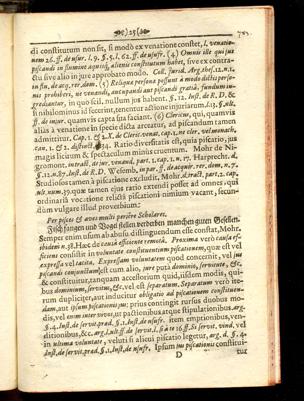 25
di constitutum non sit, si modò ex venatione constet, l. venationem
26. ff. de usur. l. 9. §. 5. l. 62. ff. de usufr. (4) Omnis ille qui jus
piscandi in flumine aut alienis constitutum habet, sive ex contractu
sive alio in jure approbato modo. Coll. jurid. Arg.
in fin. de acq. rer. dom. (5) Reliquæ personæ possunt à modò dictis personis
prohiberi, ne venandi, aucupandi aut piscandi gratiâ, fundum ingrediantur,
in quo scil. nullum jus habent. §. 12. Inst. de R. D. &
si nihilominus id fecerint, tenentur actione injuriarum.
ff. de injur. quamvis capta sua faciant. (6) Clerici, qui, quamvis
alias à venatione in specie dicta arceantur, ad piscandum tamen
admittitur, Cap. 1. & 2. X. de Cleric. venat. cap. 1. ne cler. vel monach.
Ratio diversitatis est, quia piscatio, jus
magis licitum & spectaculum minus cruentum. Mohr de Nigromont.
intract. de jur. venand. part. 1. cap. 1. n. 17. Harprecht. ad
§. 12. n. 87. Inst. de R. D. Wesemb. in par. ff. de acquir. rer. dom. n. 7.
Studiosos tamen à piscatione excludit, Mohr. d. tract. part. 2. cap.
ult. num. 39. quæ tamen ejus ratio extendi posset ad omnes, qui
ordinariâ vocatione relictâ piscationi nimium vacant, secundum
vulgare illud proverbium:
Per pisces & aves multi periêre Scholares.
Fisch fangen und Vogel stellen, verderben manchen guten Gesellen.
Semper enim usum ab abusu distinguendum esse constat, Mohr.
ibidem n. 38. Hæc de causâ efficiente remotâ. Proxima verò causa efficiens
consistit in voluntate constituentium piscationem, quæ est vel
expressa vel tacita. Expressam voluntatem quod concernit, vel jus
piscandi conjunctum est cum alio, per puta dominio, servitute, &c.
& constituitur, tanquam accessorium quid, iisdem modis, quibus
dominium, servitus, &c. vel est separatum. Separatum verò iterum
dupliciter, aut inducitur obligatio ad piscationem constituendam,
aut ipsum piscationis jus; prius contingit rursus duobus modis,
vel enim inter vivos, ut pactionibus atque stipulationibus
§. 4. Inst. de servit. præd. §. 1. Inst. de usufr. item emptionibus, venditionibus,
&c. arg. l. ult. ff. de servit. l. 16. ff. Si servit. vind. vel
in ultima voluntate, veluti si alicui piscatio legetur, arg. d. §. 4.
Inst. de servit. præd. §. 1. Inst. de usufr. Ipsum jus piscationis constituitur
D
tur